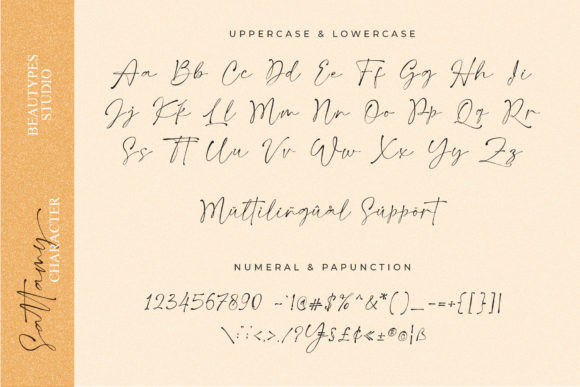 BEAUTYPES
STUDIO
Sattamy
CHARACTER
UPPERCASE & LOWERCASE
Aa Bb Cc Dd Ee Ff Gg Hh Ii
Jj Kk Ll Mm Nn Oo Pp Qq Rr
Ss Tt Uu Vv Ww Xx Yy Zz
Mültilingûâl Süppört
NUMERAL & PAPUNCTION
1234567890 -·`!@#$%^&*()_-=+{[}]|
\:;"<,>./?¥$£¢«±®©¦ß